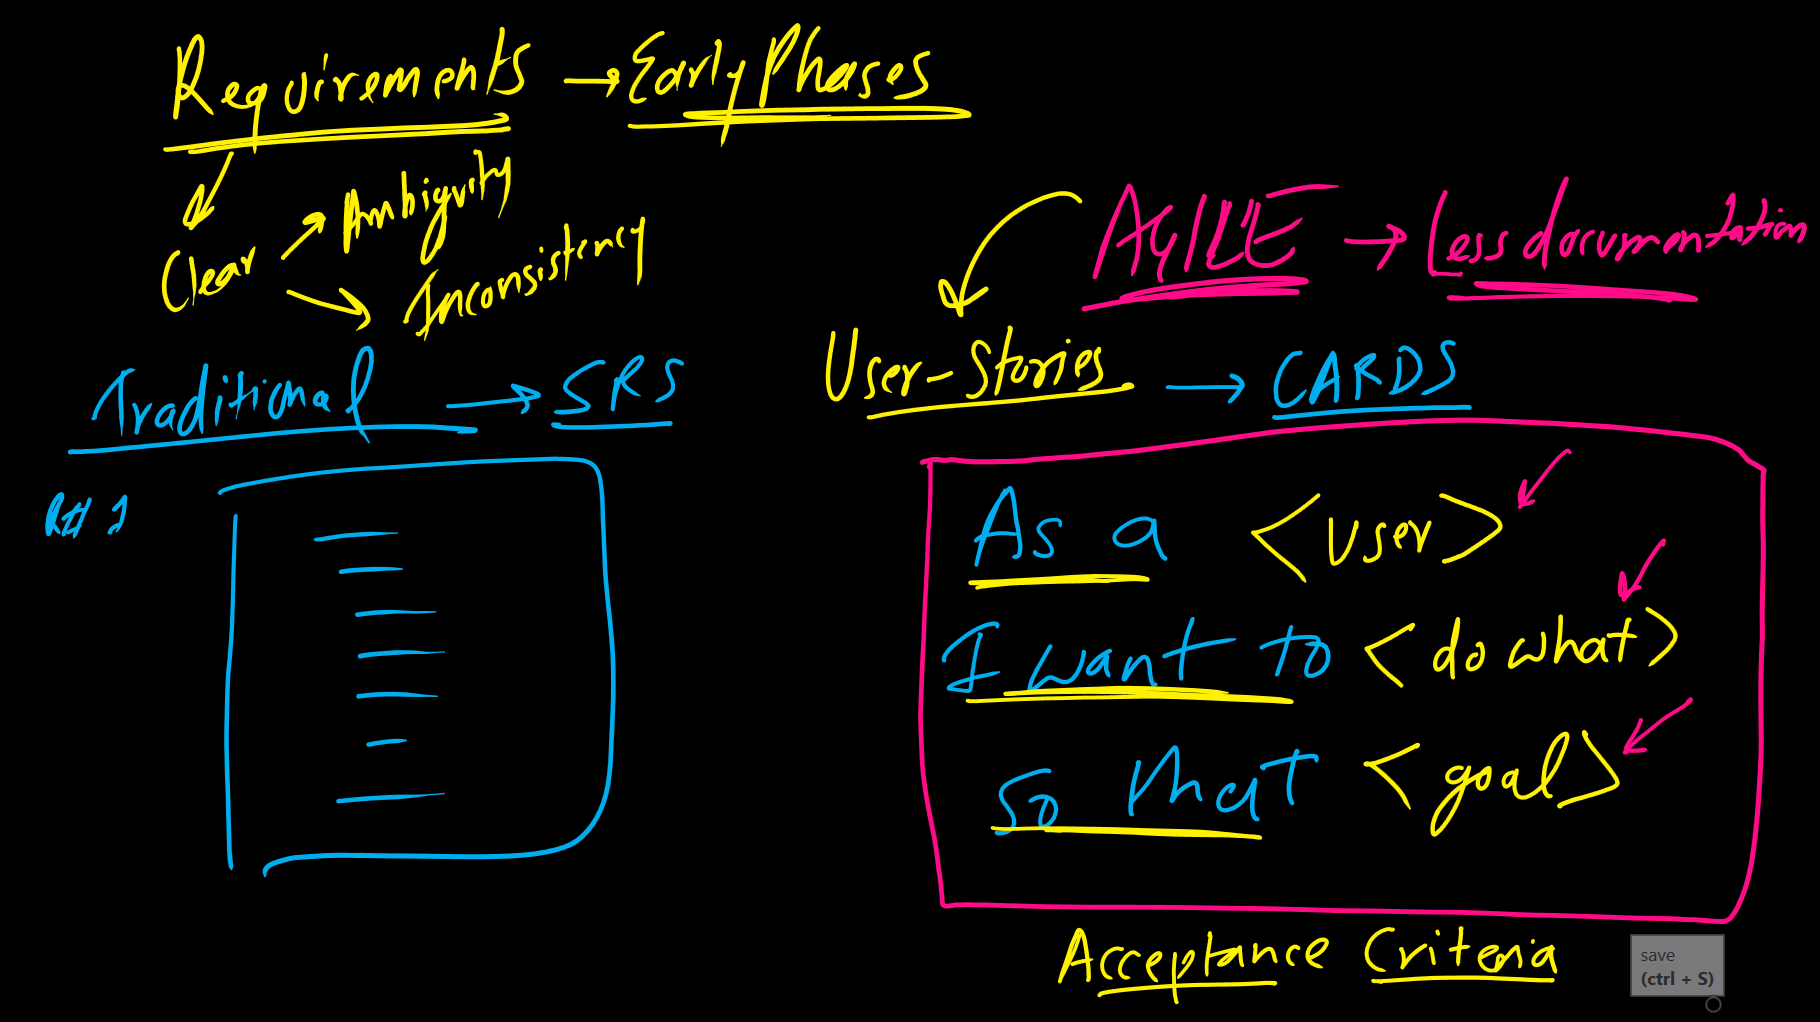 Requirements → Early Phases
Clear
Ambiguity
Inconsistency
AGILE → Less documentation
User-Stories → CARDS
Traditional → SRS
R# 1
As a <user>
I want to <do what>
so that <goal>
Acceptance Criteria
save
(ctrl + S)